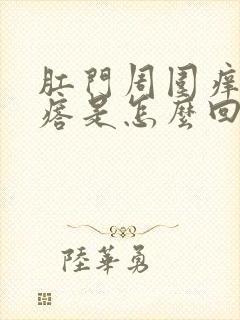 肛門周圍癢
瘩是怎麼回
陸華勇